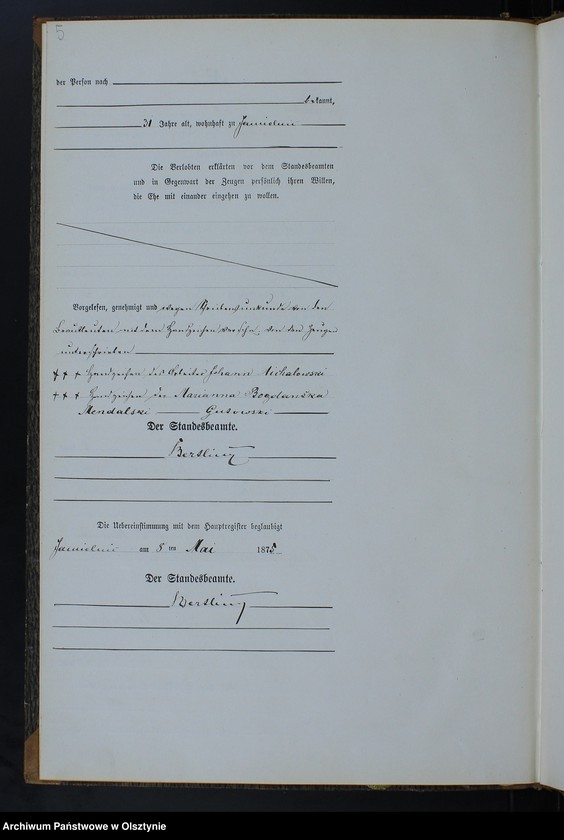 5
der Person nach
bekannt,
31 Jahre alt, wohnhaft zu Jamielnik
Die Verlobten erklärten vor dem Standesbeamten
und in Gegenwart der Zeugen persönlich ihren Willen,
die Ehe mit einander eingehen zu wollen.
Vorgelesen, genehmigt und wegen Schreibensunkunde von den
Brautleuten mit dem Handzeichen versehn, von den Zeugen
unterschrieben
+ + + Handzeichen des Arbeiter Johann Michalowski
+ + + Handzeichen der Marianna Bogdanska
Mendalski Gutowski
Der Standesbeamte.
Die Uebereinstimmung mit dem Hauptregister beglaubigt
am 5 ten Mai 1875
Der Standesbeamte.
Archiwum Państwowe w Olsztynie